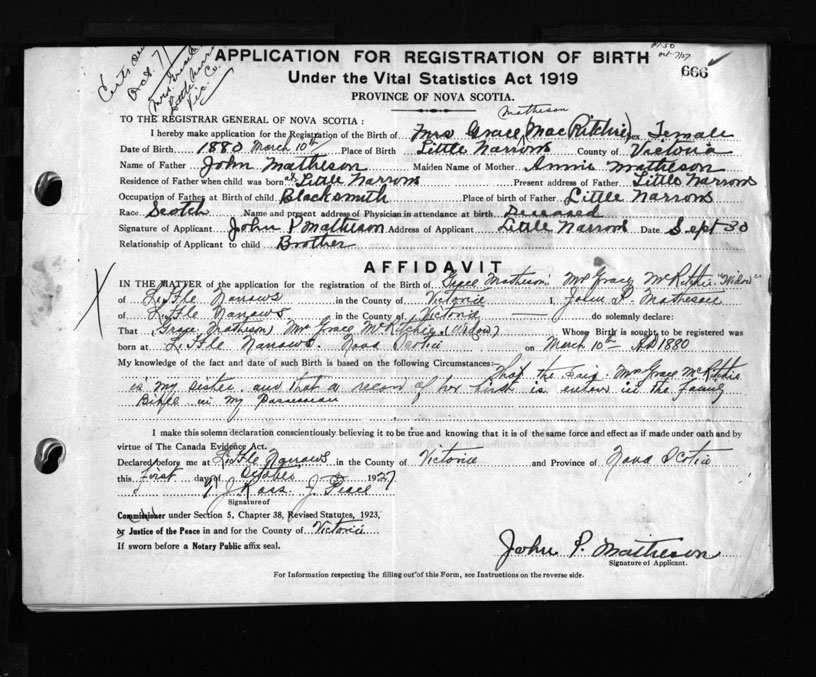 Certs
Oct. 7
Mrs Grace
Little Narr
Vic. Co.
APPLICATION FOR REGISTRATION OF BIRTH
666
Under the Vital Statistics Act 1919
PROVINCE OF NOVA SCOTIA.
TO THE REGISTRAR GENERAL OF NOVA SCOTIA:
Matheson
I hereby make application for the Registration of the Birth of Mrs Grace (MacRitchie) Sex Female
Date of Birth 1880 March 10th Place of Birth Little Narrows County of Victoria
Name of Father John Matheson Maiden Name of Mother Annie Matheson
Residence of Father when child was born at Little Narrows Present address of Father Little Narrows
Occupation of Father at Birth of child Blacksmith Place of birth of Father Little Narrows
Race Scotch Name and present address of Physician in attendance at birth Deceased
Signature of Applicant John P Matheson Address of Applicant Little Narrows Date Sept 30
Relationship of Applicant to child Brother
AFFIDAVIT
IN THE MATTER of the application for the registration of the Birth of Grace Matheson Mrs Grace McRitchie "Widow"
of Little Narrows in the County of Victoria I, John P. Matheson
of Little Narrows in the County of Victoria do solemnly declare:
That Grace Matheson Mrs Grace McRitchie (Widow) Whose Birth is sought to be registered was
born at Little Narrows. Nova Scotia on March 10th AD 1880
My knowledge of the fact and date of such Birth is based on the following Circumstances:
That the Mrs Grace McRitchie
is my sister and that a record of her birth is in the family
Bible in my Possession
I make this solemn declaration conscientiously believing it to be true and knowing that it is of the same force and effect as if made under oath and by
virtue of The Canada Evidence Act.
Declared before me at Little Narrows in the County of Victoria and Province of Nova Scotia
this First day of October 1927
J. Peace
Signature of
Commissioner under Section 5, Chapter 38, Revised Statutes, 1923,
or Justice of the Peace in and for the County of Victoria
If sworn before a Notary Public affix seal.
John P. Matheson
Signature of Applicant.
For Information respecting the filling out of this Form, see Instructions on the reverse side.